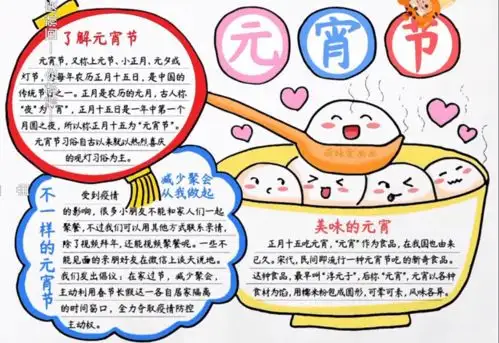 元宵节
了解元宵节
元宵节，又称上元节，小正月，元夕或
灯节，为每年农历正月十五日，是中国的
传统节日之一。正月是农历的元月，古人称
"夜"为"宵"，正月十五日是一年中第一个
月圆之夜，所以称正月十五为"元宵节"。
元宵节习俗自古以来就以热烈喜庆
的观灯习俗为主。
不一样的元宵节
减少聚会
从我做起
受到疫情
的影响，很多小朋友不能和家人们一起
聚餐，不过我们可以用其他方式联系亲情，
除了视频拜年，还能视频聚餐呢。一些不
能见面的亲朋好友在微信上谈天说地。
我们发出倡议：在家过节，减少聚会，
主动利用春节长假这一各自居家隔离
的时间窗口，全力夺取疫情防控
主动权。
美味的元宵
正月十五吃元宵，"元宵"作为食品，在我国也由来
已久。宋代，民间即流行一种元宵节吃的新奇食品。
这种食品，最早叫"浮元子"，后称"元宵"，元宵以各种
食材为馅，用糯米粉包成圆形，可荤可素，风味各异。